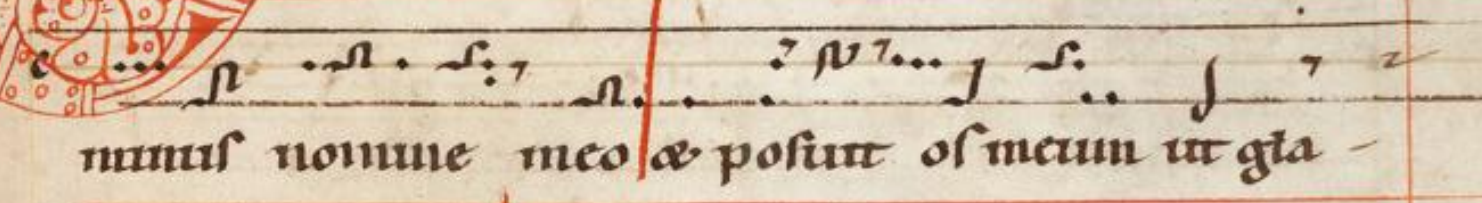 minus nomine meo & posuit os meum ut gla-